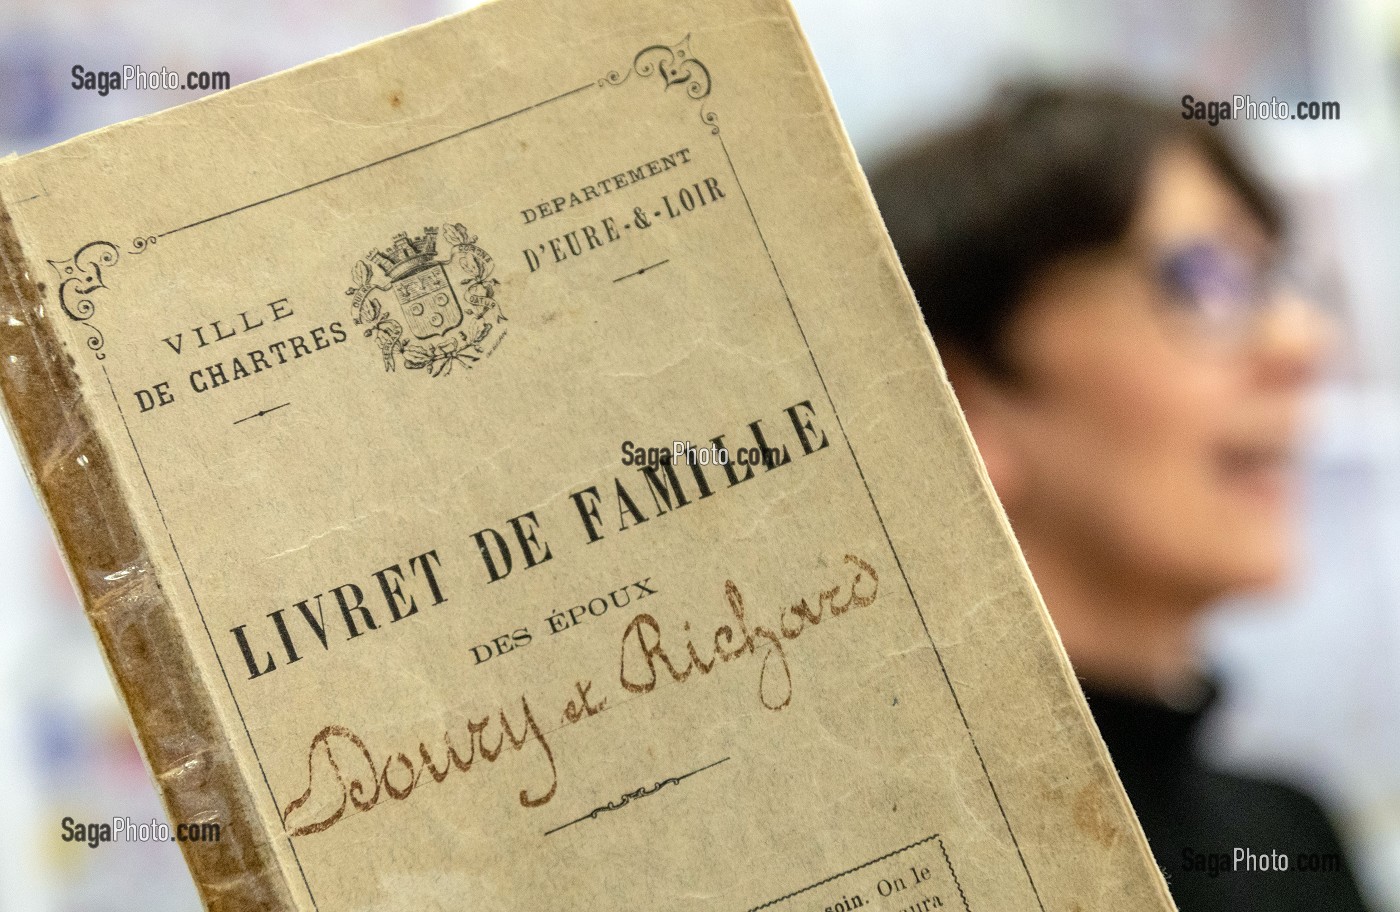 SagaPhoto.com
SagaPhoto.com
VILLE
DE CHARTRES
DEPARTEMENT
D'EURE-&-LOIR
SagaPhoto.com
LIVRET DE FAMILLE
DES ÉPOUX
Doury et Richard
SagaPhoto.com
SagaPhoto.com
soin. On le